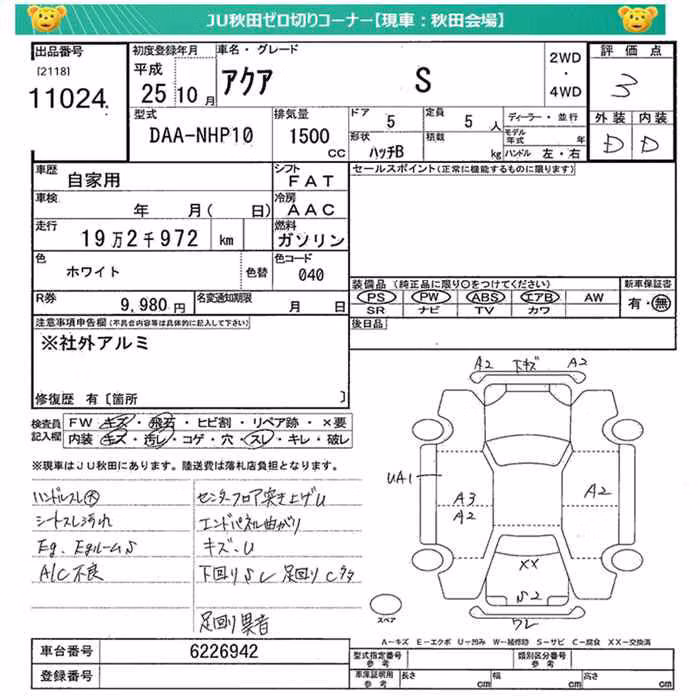 JU秋田ゼロ切りコーナー【現車：秋田会場】
出品番号
[2118]
11024
初度登録年月
平成
25 10 月
車名・グレード
アクア S
2WD
・
4WD
評価点
3
外装 内装
D D
型式
DAA-NHP10
排気量
1500
CC
ドア
5
定員
5 人
形状
ハッチB
積載
kg
ディーラー・並行
モデル
年式 年
ハンドル 左・右
車歴
自家用
シフト
FAT
セールスポイント(正常に機能するものに限ります)
車検
年 月( 日)
冷房
AAC
走行
19万2千972 km
燃料
ガソリン
色
ホワイト
色替
色コード
040
R券
9,980 円
名変通知期限
月 日
装備品 (純正品に限り○をつけてください)
PS PW ABS エアB AW
SR ナビ TV カワ
新車保証書
有・無
後日品
注意事項申告欄(不具合内容等は具体的に記入して下さい)
※社外アルミ
修復歴 有〔箇所 〕
検査員
記入欄
FW キズ・飛石・ヒビ割・リペア跡・×要
内装 キズ・汚レ・コゲ・穴・スレ・キレ・破レ
※現車はJU秋田にあります。陸送費は落札店負担となります。
ハンドルスレ大
シートスレ汚れ
Eg、EgルームS
A/C不良
センターフロア突き上げU
エンドパネル曲がり
キズ・U
下回りSレ 足回りC多
足回り異音
A2 下キズ A2
UA1
A3
A2
A2
XX
S2
ワレ
スペア
A－キズ E－エクボ U－凹み W－補修跡 S－サビ C－腐食 XX－交換済
車台番号
6226942
登録番号
型式指定番号
参考
類別区分番号
参考
車庫証明用
参考
長さ cm
幅 cm
高さ cm